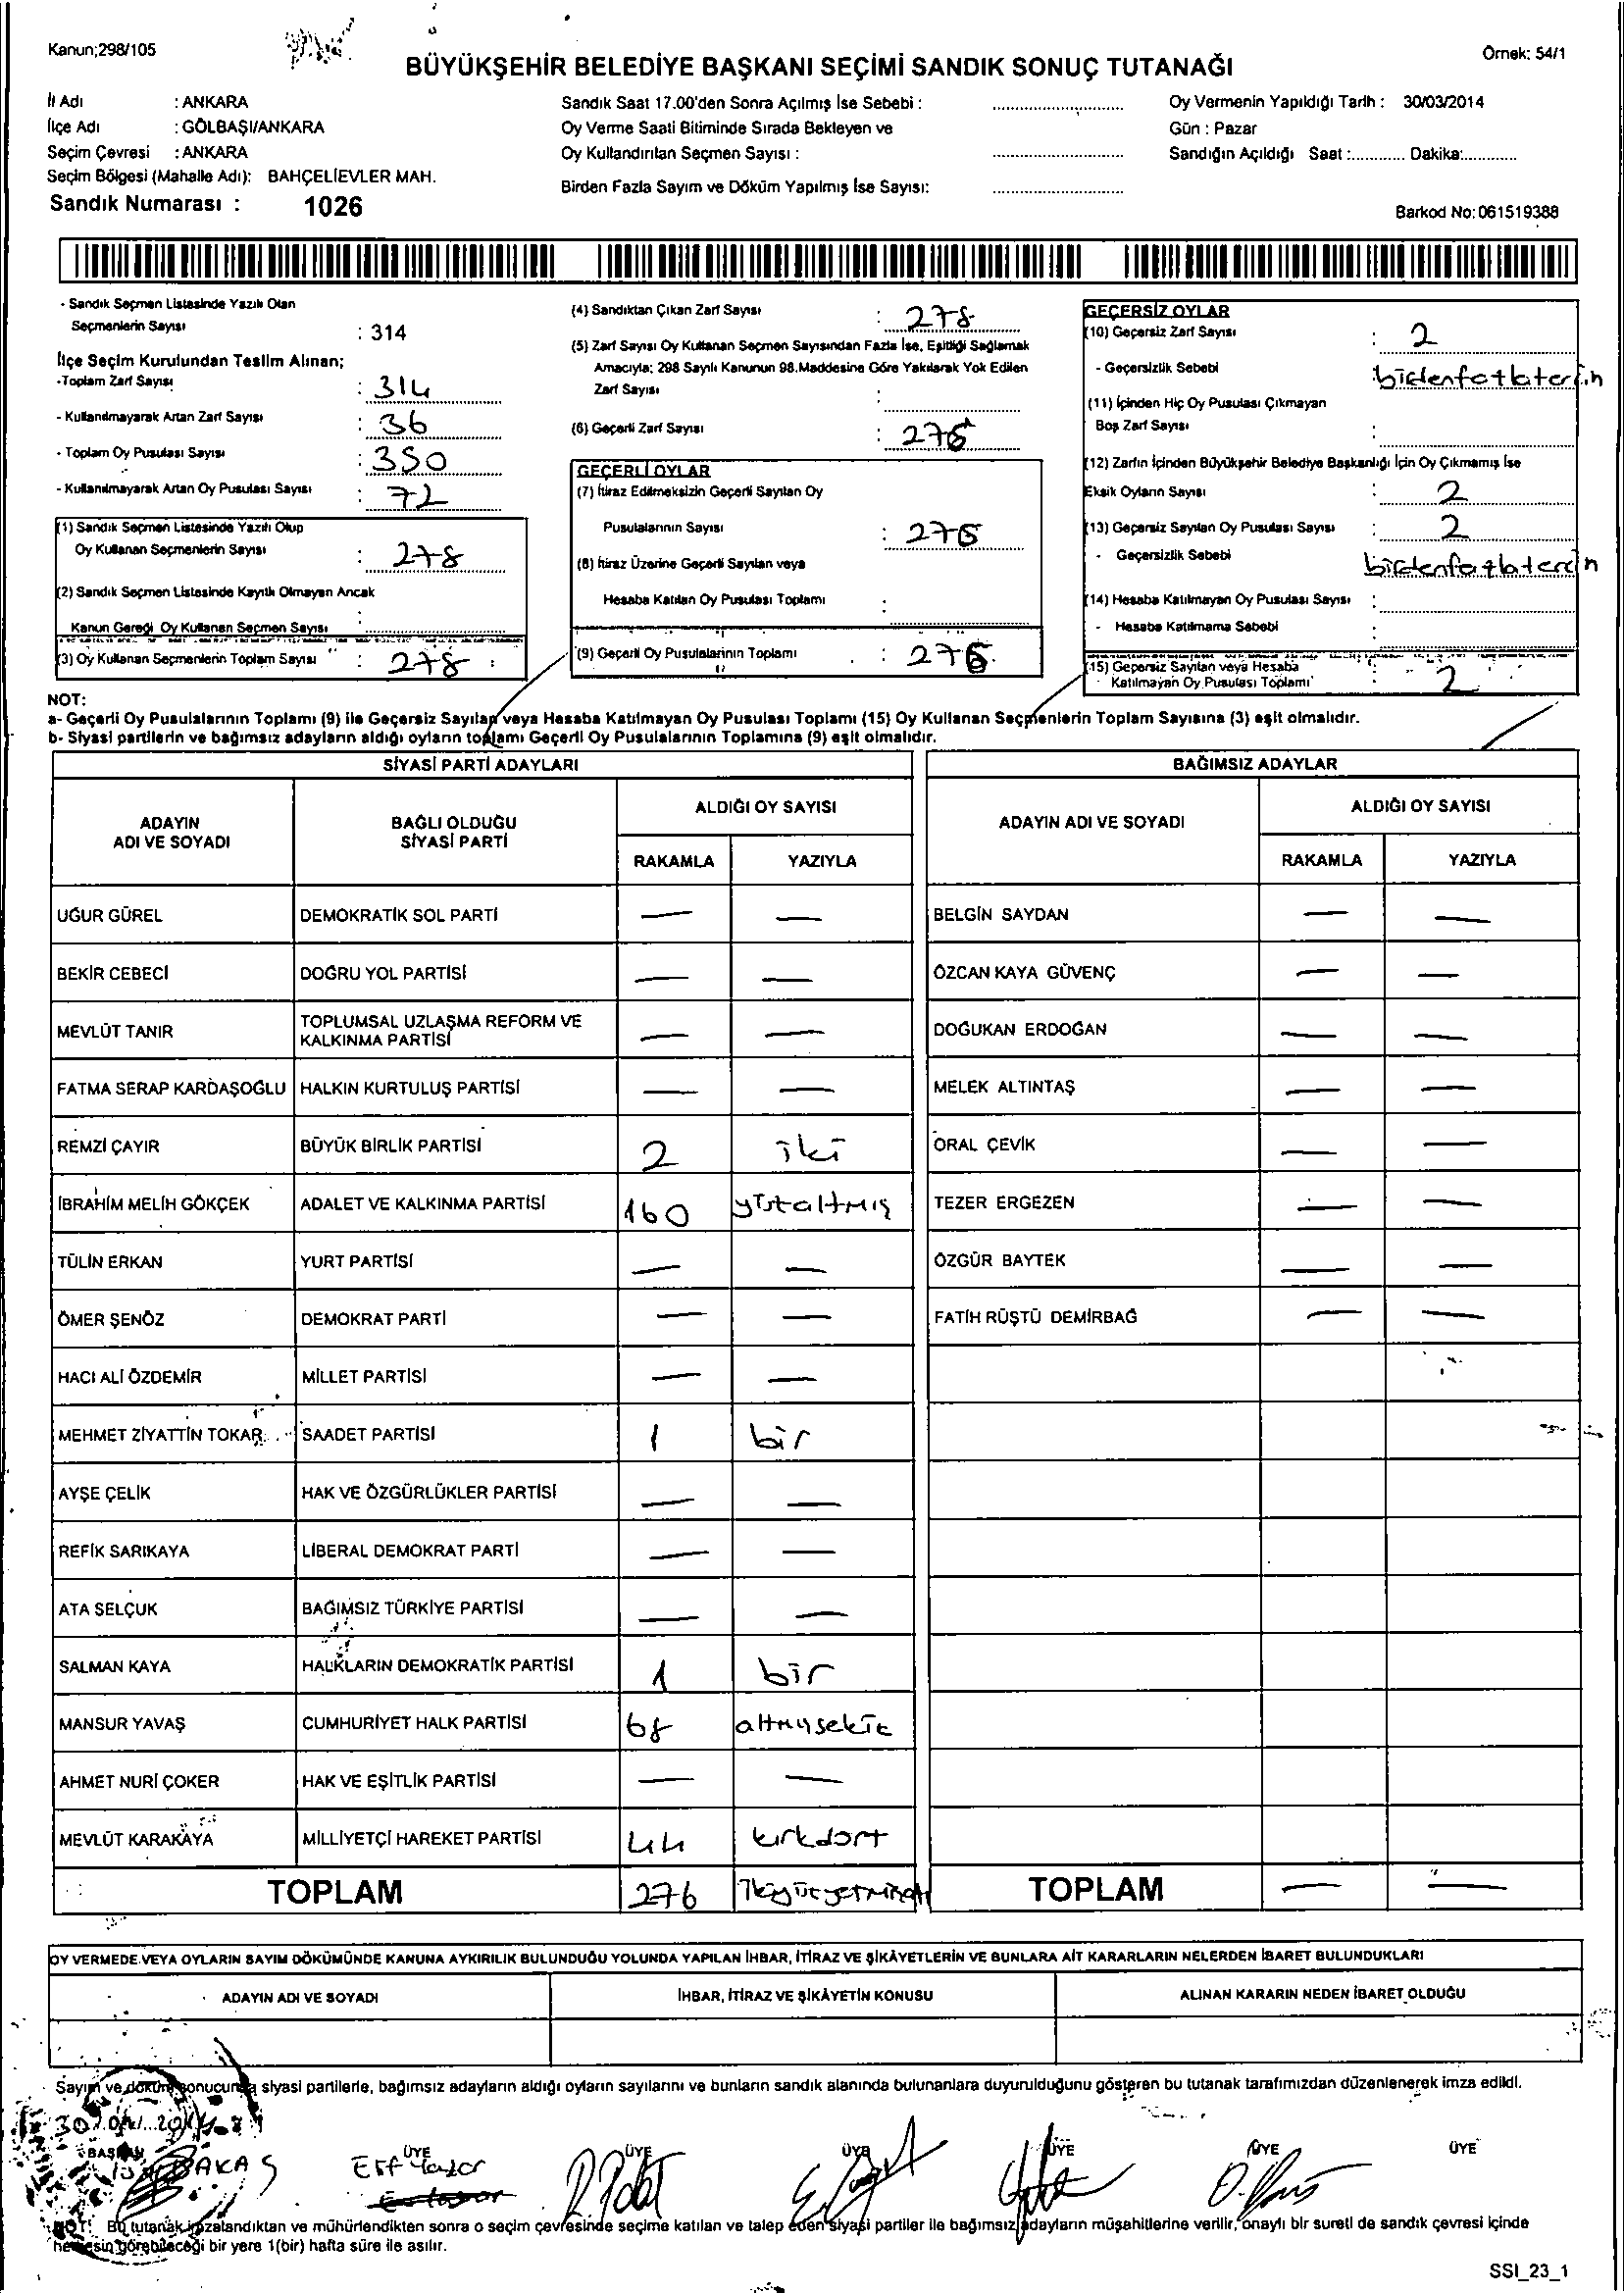 Kanun;298/105
Örnek: 54/1
BÜYÜKŞEHİR BELEDİYE BAŞKANI SEÇİMİ SANDIK SONUÇ TUTANAĞI
İl Adı : ANKARA
İlçe Adı : GÖLBAŞI/ANKARA
Seçim Çevresi : ANKARA
Seçim Bölgesi (Mahalle Adı): BAHÇELİEVLER MAH.
Sandık Numarası : 1026
Sandık Saat 17.00'den Sonra Açılmış İse Sebebi :
Oy Verme Saati Bitiminde Sırada Bekleyen ve
Oy Kullandırılan Seçmen Sayısı :
Birden Fazla Sayım ve Döküm Yapılmış İse Sayısı:
Oy Vermenin Yapıldığı Tarih : 30/03/2014
Gün : Pazar
Sandığın Açıldığı Saat :............ Dakika:............
Barkod No: 061519388
- Sandık Seçmen Listesinde Yazılı Olan
Seçmenlerin Sayısı : 314
İlçe Seçim Kurulundan Teslim Alınan;
-Toplam Zarf Sayısı : 314
- Kullanılmayarak Artan Zarf Sayısı : 36
- Toplam Oy Pusulası Sayısı : 350
- Kullanılmayarak Artan Oy Pusulası Sayısı : 72
(1) Sandık Seçmen Listesinde Yazılı Olup
Oy Kullanan Seçmenlerin Sayısı : 278
(2) Sandık Seçmen Listesinde Kayıtlı Olmayan Ancak
Kanun Gereği Oy Kullanan Seçmen Sayısı :
(3) Oy Kullanan Seçmenlerin Toplam Sayısı : 278
(4) Sandıktan Çıkan Zarf Sayısı : 278
(5) Zarf Sayısı Oy Kullanan Seçmen Sayısından Fazla İse, Eşitliği Sağlamak
Amacıyla; 298 Sayılı Kanunun 98.Maddesine Göre Yakılarak Yok Edilen
Zarf Sayısı :
(6) Geçerli Zarf Sayısı : 276
GEÇERLİ OYLAR
(7) İtiraz Edilmeksizin Geçerli Sayılan Oy
Pusulalarının Sayısı : 276
(8) İtiraz Üzerine Geçerli Sayılan veya
Hesaba Katılan Oy Pusulası Toplamı :
(9) Geçerli Oy Pusulalarının Toplamı : 276
GEÇERSİZ OYLAR
(10) Geçersiz Zarf Sayısı : 2
- Geçersizlik Sebebi : birdenfazlatercih
(11) İçinden Hiç Oy Pusulası Çıkmayan
Boş Zarf Sayısı :
(12) Zarfın İçinden Büyükşehir Belediye Başkanlığı İçin Oy Çıkmamış İse
Eksik Oyların Sayısı : 2
(13) Geçersiz Sayılan Oy Pusulası Sayısı : 2
- Geçersizlik Sebebi birdenfazlatercih
(14) Hesaba Katılmayan Oy Pusulası Sayısı :
- Hesaba Katılmama Sebebi :
(15) Geçersiz Sayılan veya Hesaba
Katılmayan Oy Pusulası Toplamı : 2
NOT:
a- Geçerli Oy Pusulalarının Toplamı (9) ile Geçersiz Sayılan veya Hesaba Katılmayan Oy Pusulası Toplamı (15) Oy Kullanan Seçmenlerin Toplam Sayısına (3) eşit olmalıdır.
b- Siyasi partilerin ve bağımsız adayların aldığı oyların toplamı Geçerli Oy Pusulalarının Toplamına (9) eşit olmalıdır.
SİYASİ PARTİ ADAYLARI
ADAYIN ADI VE SOYADI
BAĞLI OLDUĞU SİYASİ PARTİ
ALDIĞI OY SAYISI
RAKAMLA YAZIYLA
UĞUR GÜREL DEMOKRATİK SOL PARTİ — —
BEKİR CEBECİ DOĞRU YOL PARTİSİ — —
MEVLÜT TANIR TOPLUMSAL UZLAŞMA REFORM VE KALKINMA PARTİSİ — —
FATMA SERAP KARDAŞOĞLU HALKIN KURTULUŞ PARTİSİ — —
REMZİ ÇAYIR BÜYÜK BİRLİK PARTİSİ 2 iki
İBRAHİM MELİH GÖKÇEK ADALET VE KALKINMA PARTİSİ 160 yüzaltmış
TÜLİN ERKAN YURT PARTİSİ — —
ÖMER ŞENÖZ DEMOKRAT PARTİ — —
HACI ALİ ÖZDEMİR MİLLET PARTİSİ — —
MEHMET ZİYATTİN TOKAR SAADET PARTİSİ 1 bir
AYŞE ÇELİK HAK VE ÖZGÜRLÜKLER PARTİSİ — —
REFİK SARIKAYA LİBERAL DEMOKRAT PARTİ — —
ATA SELÇUK BAĞIMSIZ TÜRKİYE PARTİSİ — —
SALMAN KAYA HALKLARIN DEMOKRATİK PARTİSİ 1 bir
MANSUR YAVAŞ CUMHURİYET HALK PARTİSİ 68 altmışsekiz
AHMET NURİ ÇOKER HAK VE EŞİTLİK PARTİSİ — —
MEVLÜT KARAKAYA MİLLİYETÇİ HAREKET PARTİSİ 44 kırkdört
TOPLAM 276 ikiyüzyetmişaltı
BAĞIMSIZ ADAYLAR
ADAYIN ADI VE SOYADI
ALDIĞI OY SAYISI
RAKAMLA YAZIYLA
BELGİN SAYDAN — —
ÖZCAN KAYA GÜVENÇ — —
DOĞUKAN ERDOĞAN — —
MELEK ALTINTAŞ — —
ORAL ÇEVİK — —
TEZER ERGEZEN — —
ÖZGÜR BAYTEK — —
FATİH RÜŞTÜ DEMİRBAĞ — —
TOPLAM — —
OY VERMEDE VEYA OYLARIN SAYIM DÖKÜMÜNDE KANUNA AYKIRILIK BULUNDUĞU YOLUNDA YAPILAN İHBAR, İTİRAZ VE ŞİKÂYETLERİN VE BUNLARA AİT KARARLARIN NELERDEN İBARET BULUNDUKLARI
ADAYIN ADI VE SOYADI
İHBAR, İTİRAZ VE ŞİKÂYETİN KONUSU
ALINAN KARARIN NEDEN İBARET OLDUĞU
Sayım ve döküm sonucunda siyasi partilerle, bağımsız adayların aldığı oyların sayılarını ve bunların sandık alanında bulunanlara duyurulduğunu gösteren bu tutanak tarafımızdan düzenlenerek imza edildi.
BAŞKAN ÜYE ÜYE ÜYE ÜYE ÜYE ÜYE
NOT: Bu tutanak imzalandıktan ve mühürlendikten sonra o seçim çevresinde seçime katılan ve talep eden siyasi partiler ile bağımsız adayların müşahitlerine verilir, onaylı bir sureti de sandık çevresi içinde
herkesin görebileceği bir yere 1(bir) hafta süre ile asılır.
SSI_23_1